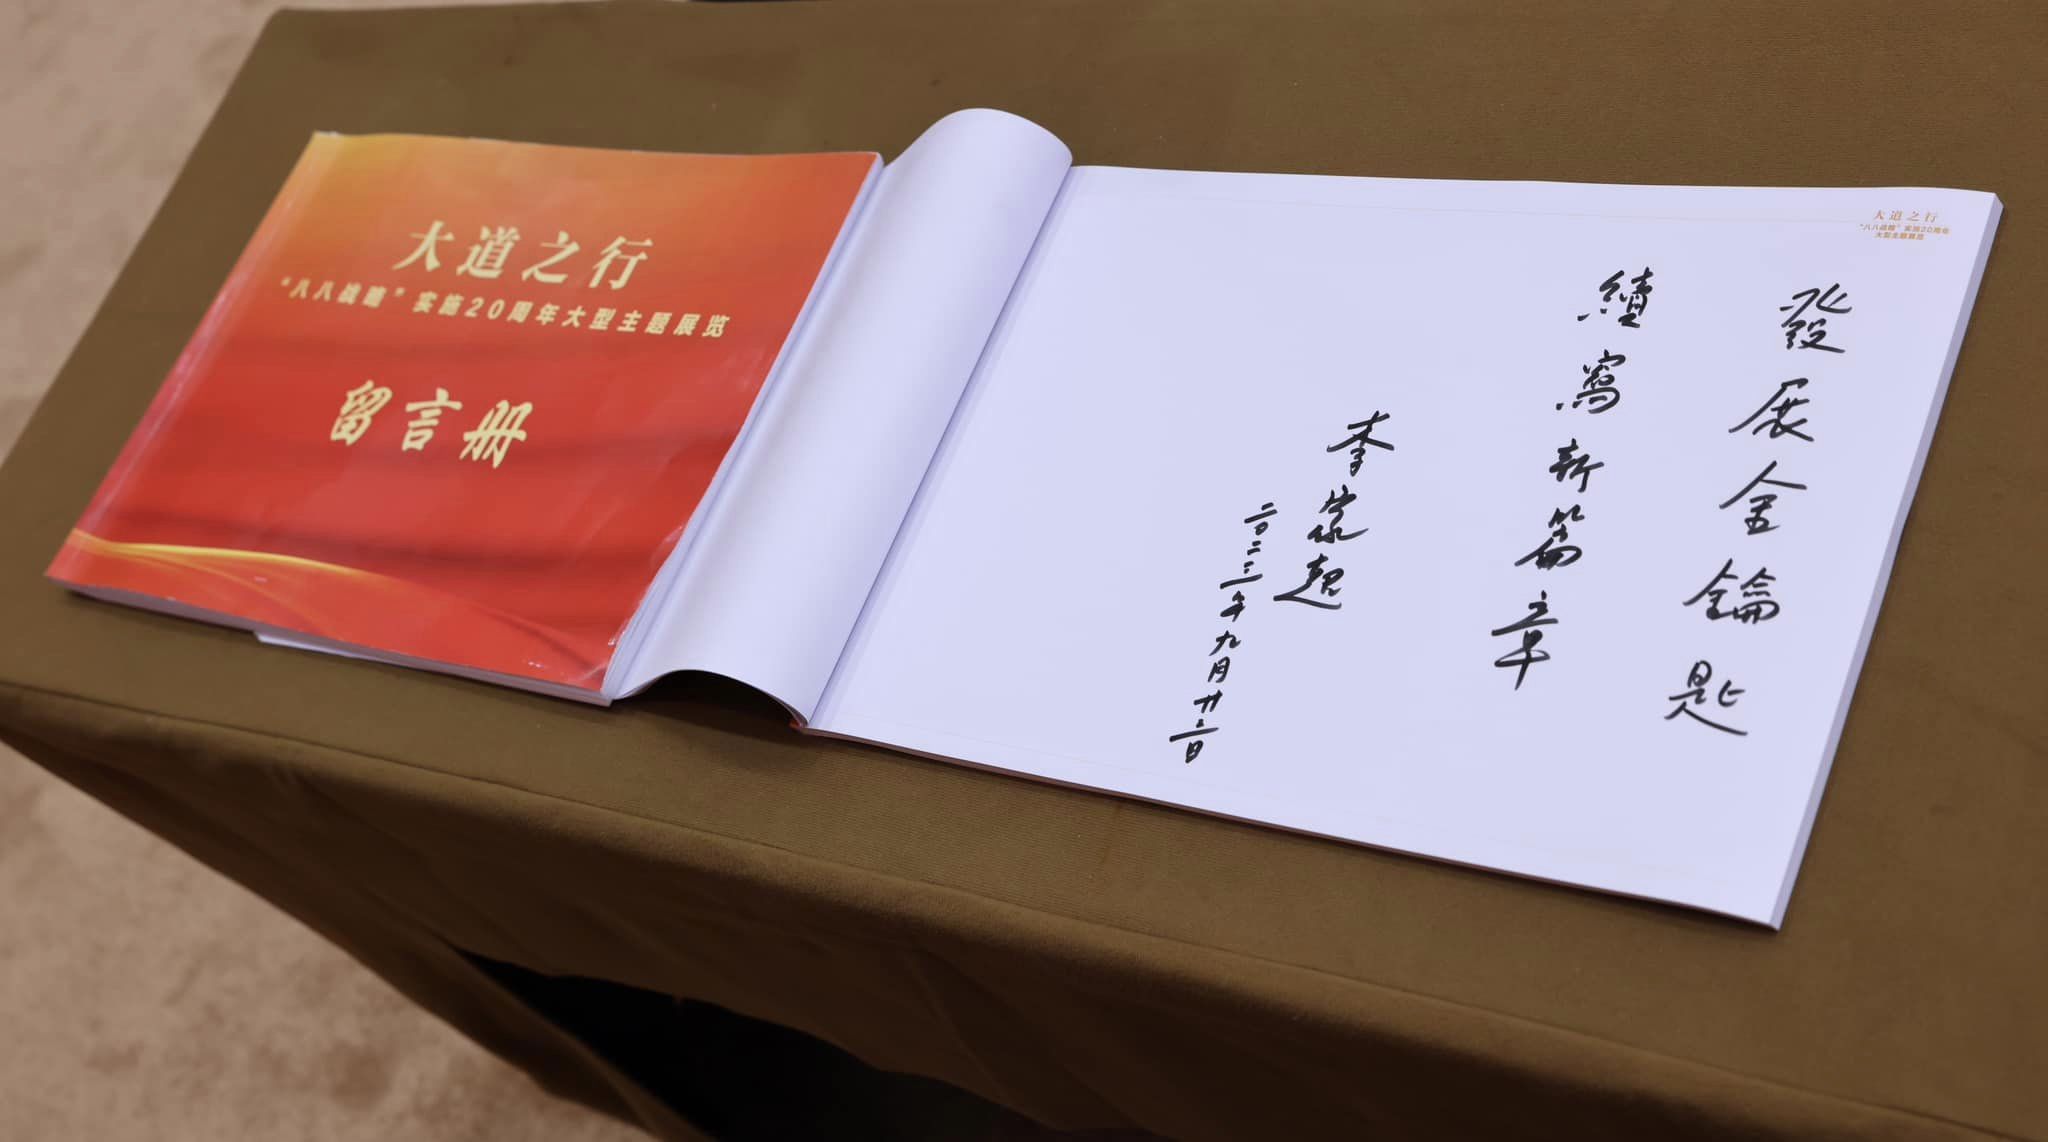 大道之行
“八八战略”实施20周年大型主题展览
留言册
大道之行
“八八战略”实施20周年
大型主题展览
發展金鑰匙
續寫新篇章
李家超
二〇二三年九月廿二日